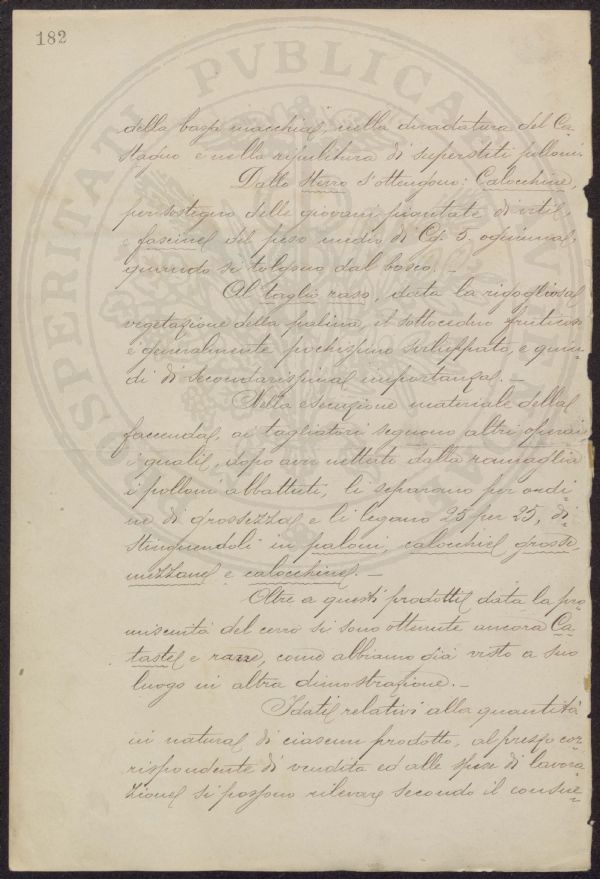 182
PROSPERITATI PVBLICAE
della bassa macchia, nella diradatura del Ca-
stagno e nella ripulitura di superstiti polloni.
Dallo sterro s'ottengono: Calocchine,
per sostegno delle giovani piantate di viti,
e fascine del peso medio di Cg. 5. ognuna,
quando si tolgono dal bosco. _
Al taglio raso, data la rigogliosa
vegetazione della palina, il sottoceduo fruticoso
è generalmente pochissimo sviluppato, e quin-
di di secondarissima importanza. _
Nella esecuzione materiale della
faccenda, ai tagliatori seguono altri operai
i quali, dopo aver nettati dalla ramaglia
i polloni abbattuti, li separano per ordi-
ne di grossezza e li legano 25 per 25, di-
stinguendoli in paloni, calocchie grosse,
mezzane e calocchine. _
Oltre a questi prodotti data la pro-
miscuità del cerro si sono ottenute ancora Ca-
taste e rame, come abbiamo già visto a suo
luogo in altra dimostrazione. _
I dati relativi alla quantità
in natura di ciascun prodotto, al prezzo cor-
rispondente di vendita ed alle spese di lavora-
zione si possono rilevare secondo il consue-